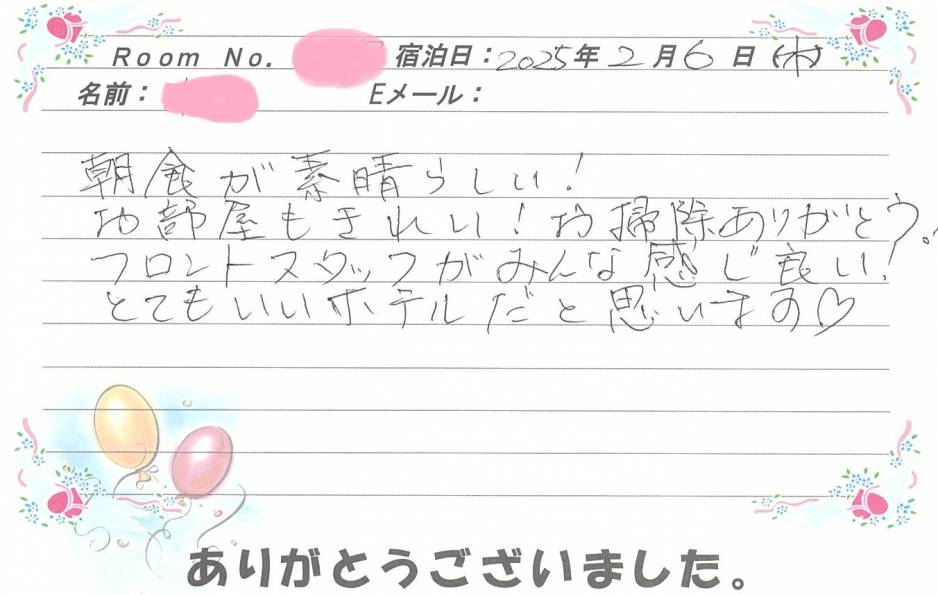 Room No. 宿泊日：2025年2月6日(木)
名前： Eメール：
朝食が素晴らしい！
お部屋もきれい！お掃除ありがとう。
フロントスタッフがみんな感じ良い！
とてもいいホテルだと思います♡
ありがとうございました。